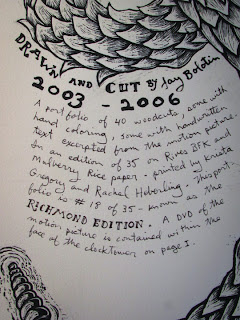 DRAWN AND CUT By Jay Bolotin
2003 - 2006
A portfolio of 40 woodcuts, some with
hand coloring, some with handwritten
text excerpted from the motion picture.
In an edition of 35 on Rives BFK and
Mulberry Rice paper - printed by Krista
Gregory and Rachel Heberling - this port-
folio is # 18 of 35 - known as the
RICHMOND EDITION. A DVD of the
motion picture is contained within the
face of the clocktower on page I.